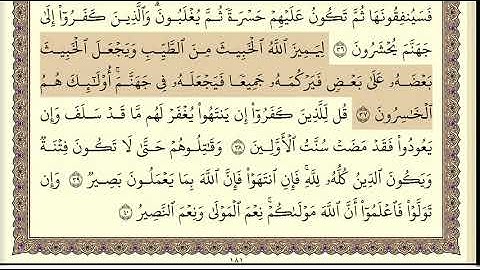 فَسَيُنفِقُونَهَا ثُمَّ تَكُونُ عَلَيْهِمْ حَسْرَةً ثُمَّ يُغْلَبُونَ ۗ وَالَّذِينَ كَفَرُوٓا۟ إِلَىٰ
جَهَنَّمَ يُحْشَرُونَ ٣٦ لِيَمِيزَ اللَّهُ الْخَبِيثَ مِنَ الطَّيِّبِ وَيَجْعَلَ الْخَبِيثَ
بَعْضَهُۥ عَلَىٰ بَعْضٍ فَيَرْكُمَهُۥ جَمِيعًا فَيَجْعَلَهُۥ فِى جَهَنَّمَ ۚ أُو۟لَـٰٓئِكَ هُمُ
الْخَـٰسِرُونَ ٣٧ قُل لِّلَّذِينَ كَفَرُوٓا۟ إِن يَنتَهُوا۟ يُغْفَرْ لَهُم مَّا قَدْ سَلَفَ وَإِن
يَعُودُوا۟ فَقَدْ مَضَتْ سُنَّتُ الْأَوَّلِينَ ٣٨ وَقَـٰتِلُوهُمْ حَتَّىٰ لَا تَكُونَ فِتْنَةٌ
وَيَكُونَ الدِّينُ كُلُّهُۥ لِلَّهِ ۚ فَإِنِ انتَهَوْا۟ فَإِنَّ اللَّهَ بِمَا يَعْمَلُونَ بَصِيرٌ ٣٩ وَإِن
تَوَلَّوْا۟ فَاعْلَمُوٓا۟ أَنَّ اللَّهَ مَوْلَىٰكُمْ ۚ نِعْمَ الْمَوْلَىٰ وَنِعْمَ النَّصِيرُ ٤٠
١٨١